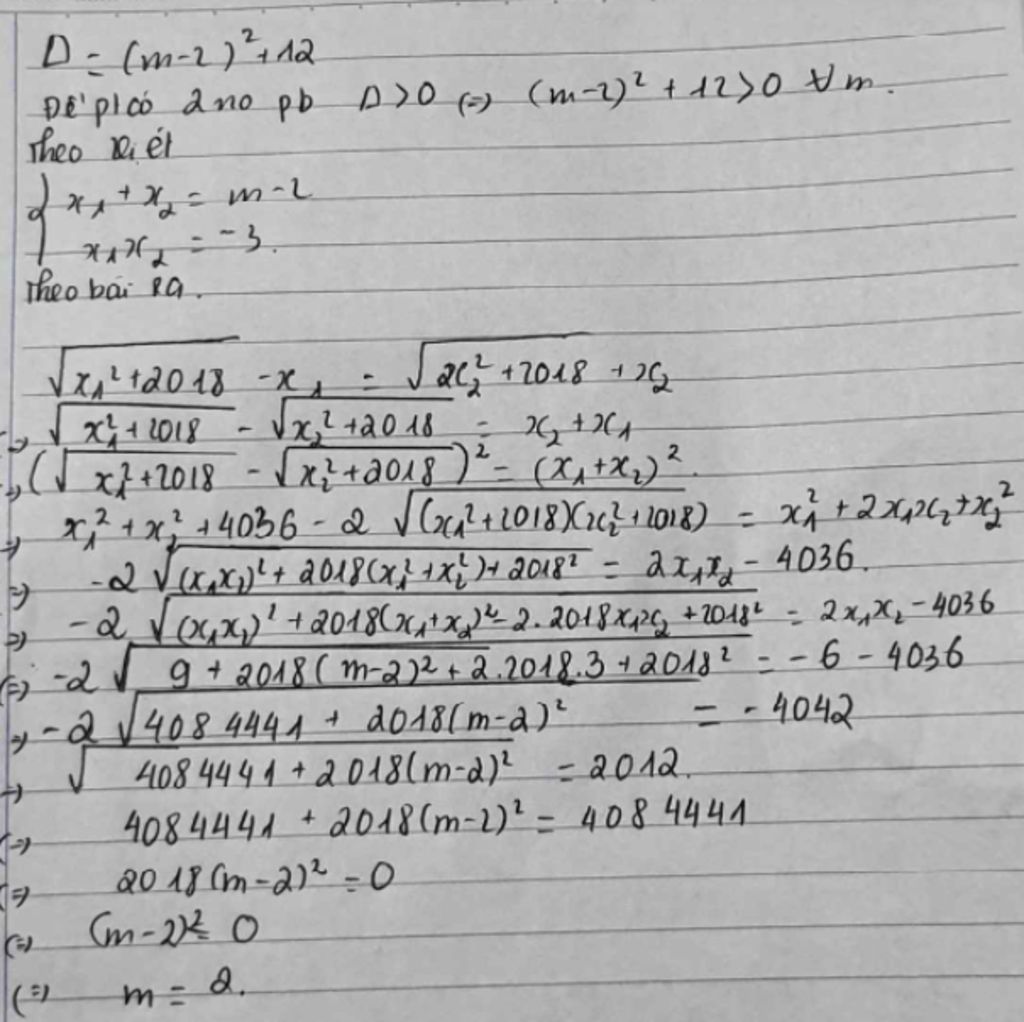 Δ = (m-2)² + 12
Để pt có 2 no pb Δ > 0 (=) (m-2)² + 12 > 0 ∀m.
Theo Vi ét
{ x₁ + x₂ = m-2
x₁x₂ = -3.
Theo bài ra.
√(x₁² + 2018) - x₁ = √(x₂² + 2018) + x₂
=> √(x₁² + 2018) - √(x₂² + 2018) = x₂ + x₁
=> (√(x₁² + 2018) - √(x₂² + 2018))² = (x₁ + x₂)².
=> x₁² + x₂² + 4036 - 2√((x₁² + 2018)(x₂² + 2018)) = x₁² + 2x₁x₂ + x₂²
=> -2√((x₁x₂)² + 2018(x₁² + x₂²) + 2018²) = 2x₁x₂ - 4036.
=> -2√((x₁x₂)² + 2018(x₁ + x₂)² - 2.2018x₁x₂ + 2018²) = 2x₁x₂ - 4036
(=) -2√(9 + 2018(m-2)² + 2.2018.3 + 2018²) = -6 - 4036
=> -2√(4084441 + 2018(m-2)²) = -4042
=> √(4084441 + 2018(m-2)²) = 2012.
(=) 4084441 + 2018(m-2)² = 4084441
(=) 2018(m-2)² = 0
(=) (m-2)² = 0
(=) m = 2.